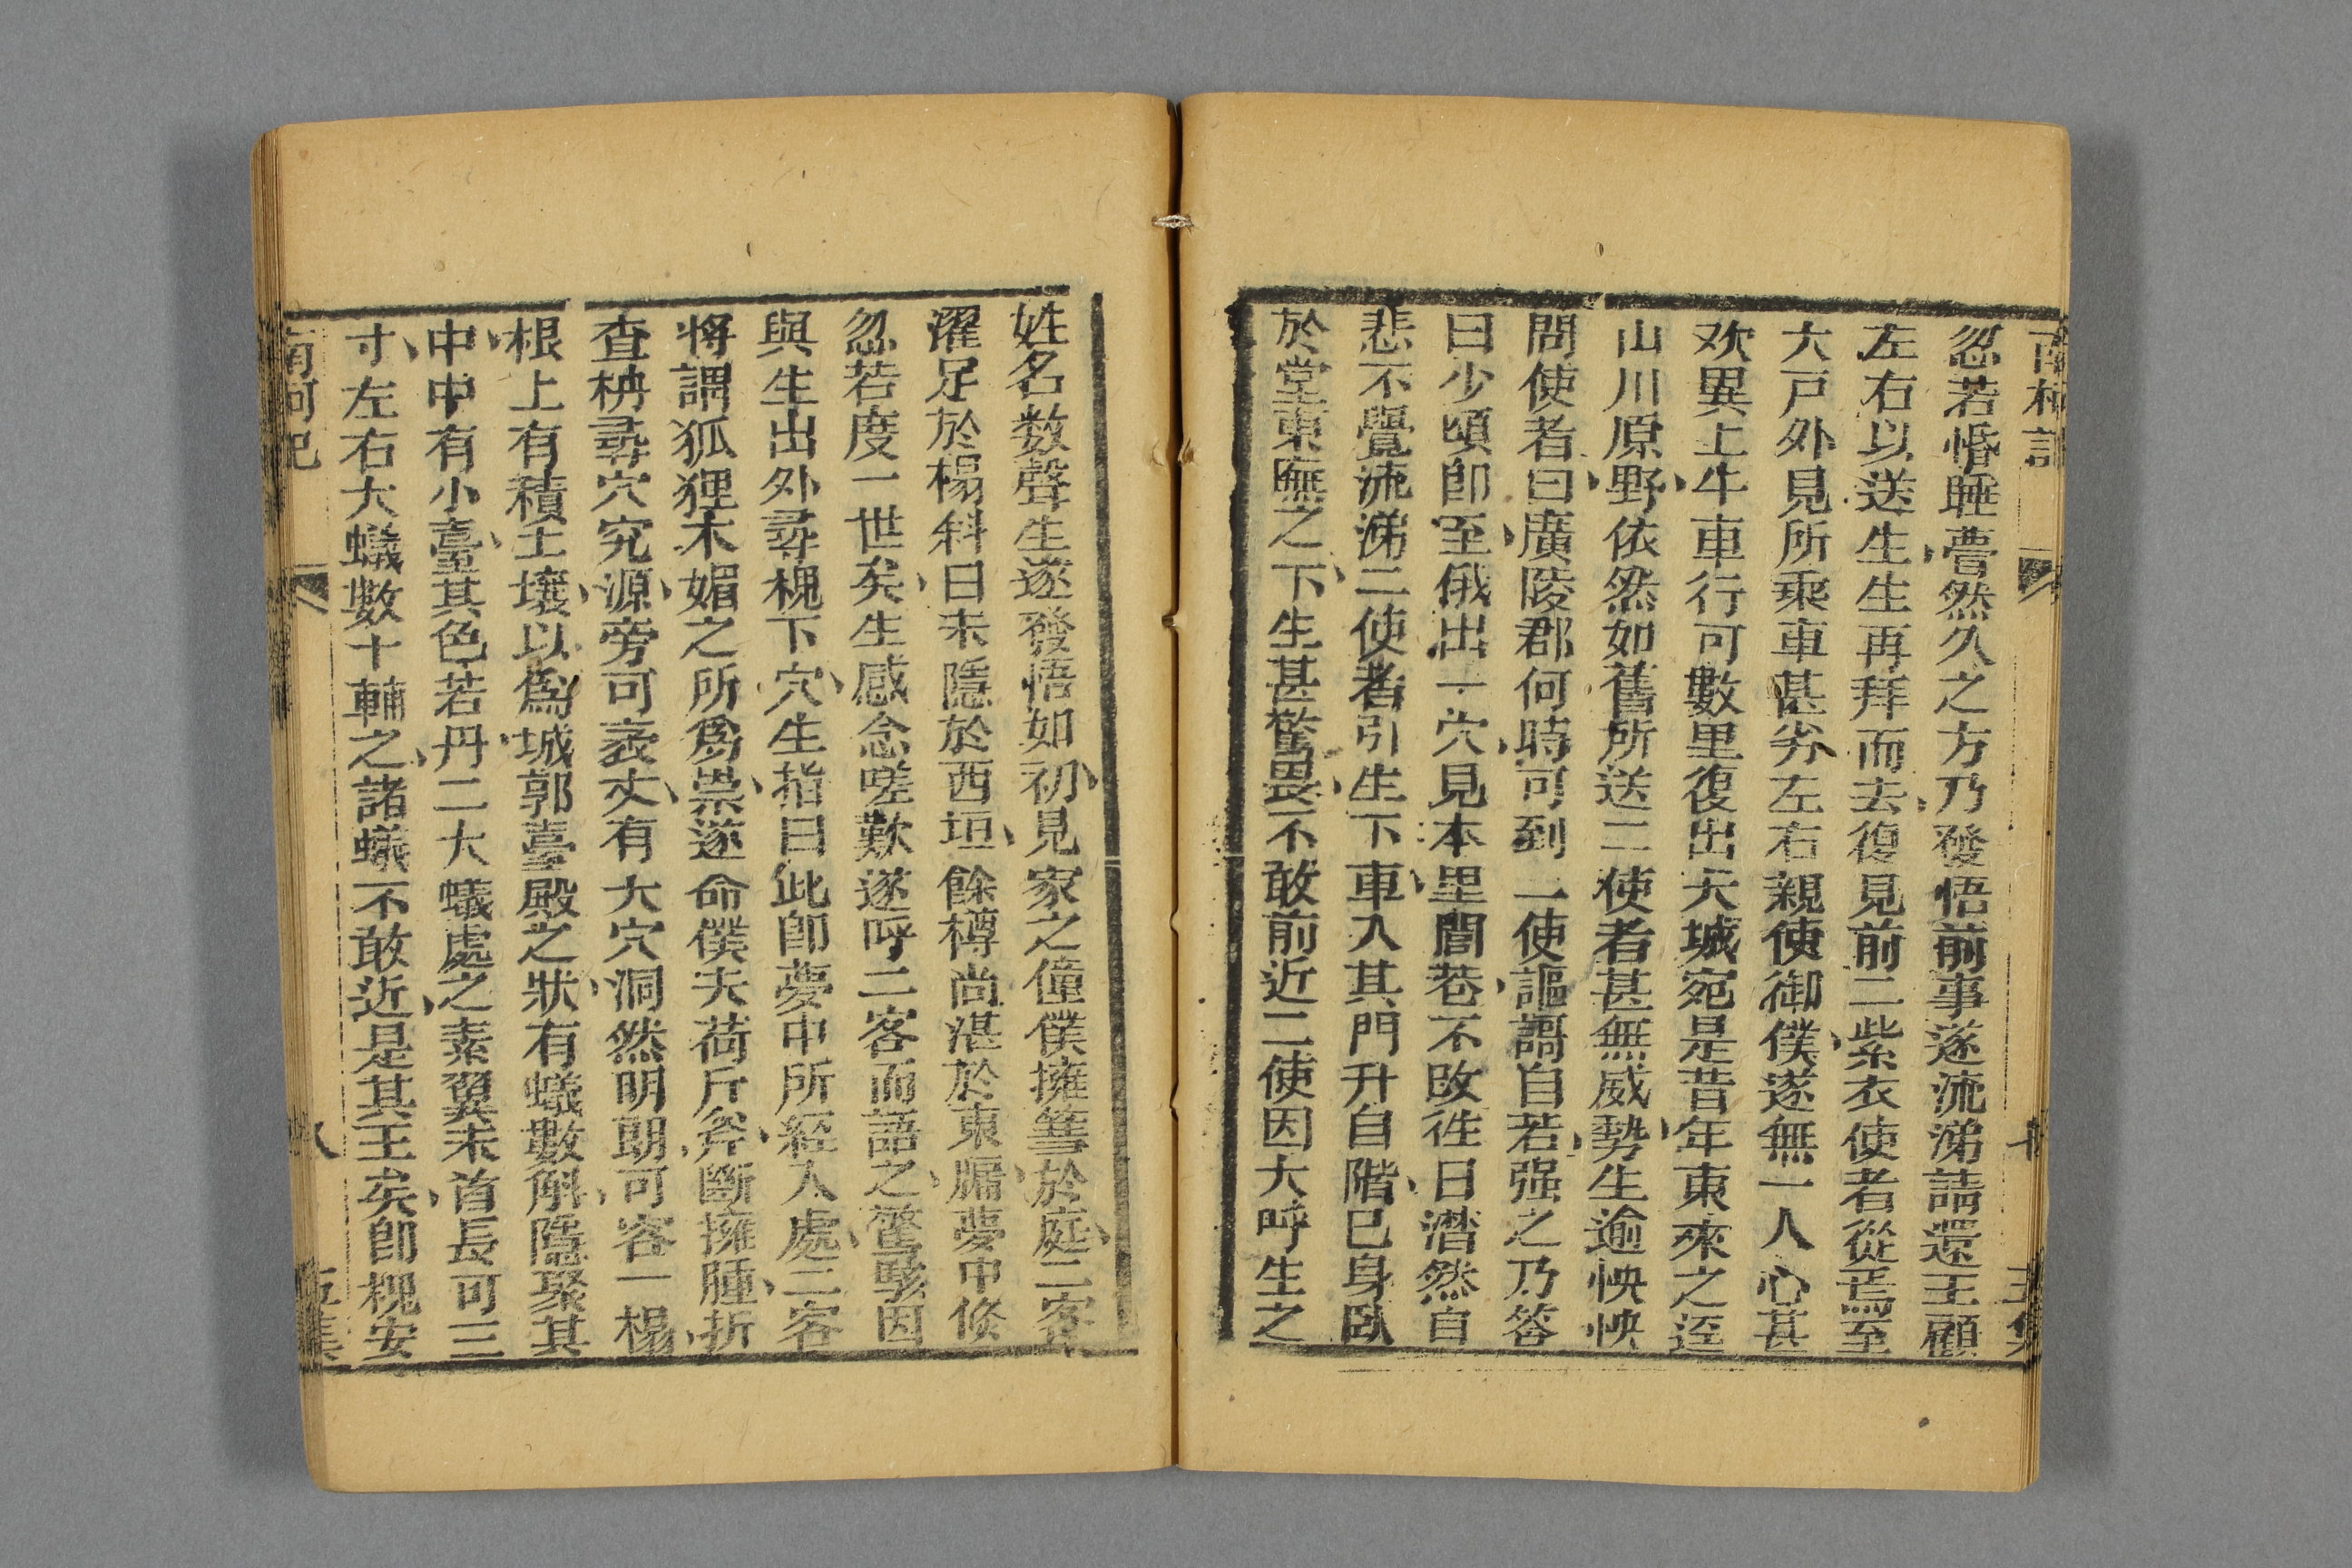 南柯記
七
五集
忽若惛睡瞢然久之方乃發悟前事遂流涕請還王顧
左右以送生生再拜而去復見前二紫衣使者從焉至
大戸外見所乘車甚劣左右親使御僕遂無一人心甚
欢異上牛車行可數里復出大城宛是昔年東來之逕
山川原野依然如舊所送二使者甚無威勢生逾怏怏
問使者曰廣陵郡何時可到二使謳謌自若强之乃答
曰少頃卽至俄出一穴見本里閭巷不改徃日潸然自
悲不覺流涕二使者引生下車入其門升自階已身臥
於堂東廡之下生甚驚畏不敢前近二使因大呼生之
姓名数聲生遂發悟如初見家之僮僕擁篲於庭二客
濯足於榻斜日未隱於西垣餘樽尚湛於東牖夢中倏
忽若度一世矣生感念嗟歎遂呼二客而語之驚駭因
與生出外尋槐下穴生指曰此卽夢中所經入處二客
將謂狐狸木媚之所爲祟遂命僕夫荷斤斧斷擁腫折
查枿尋穴究源旁可袤丈有大穴洞然明朗可容一榻
根上有積土壤以爲城郭臺殿之狀有蟻數斛隱聚其
中中有小臺其色若丹二大蟻處之素翼朱首長可三
寸左右大蟻數十輔之諸蟻不敢近是其王矣卽槐安
南柯記
八
五集